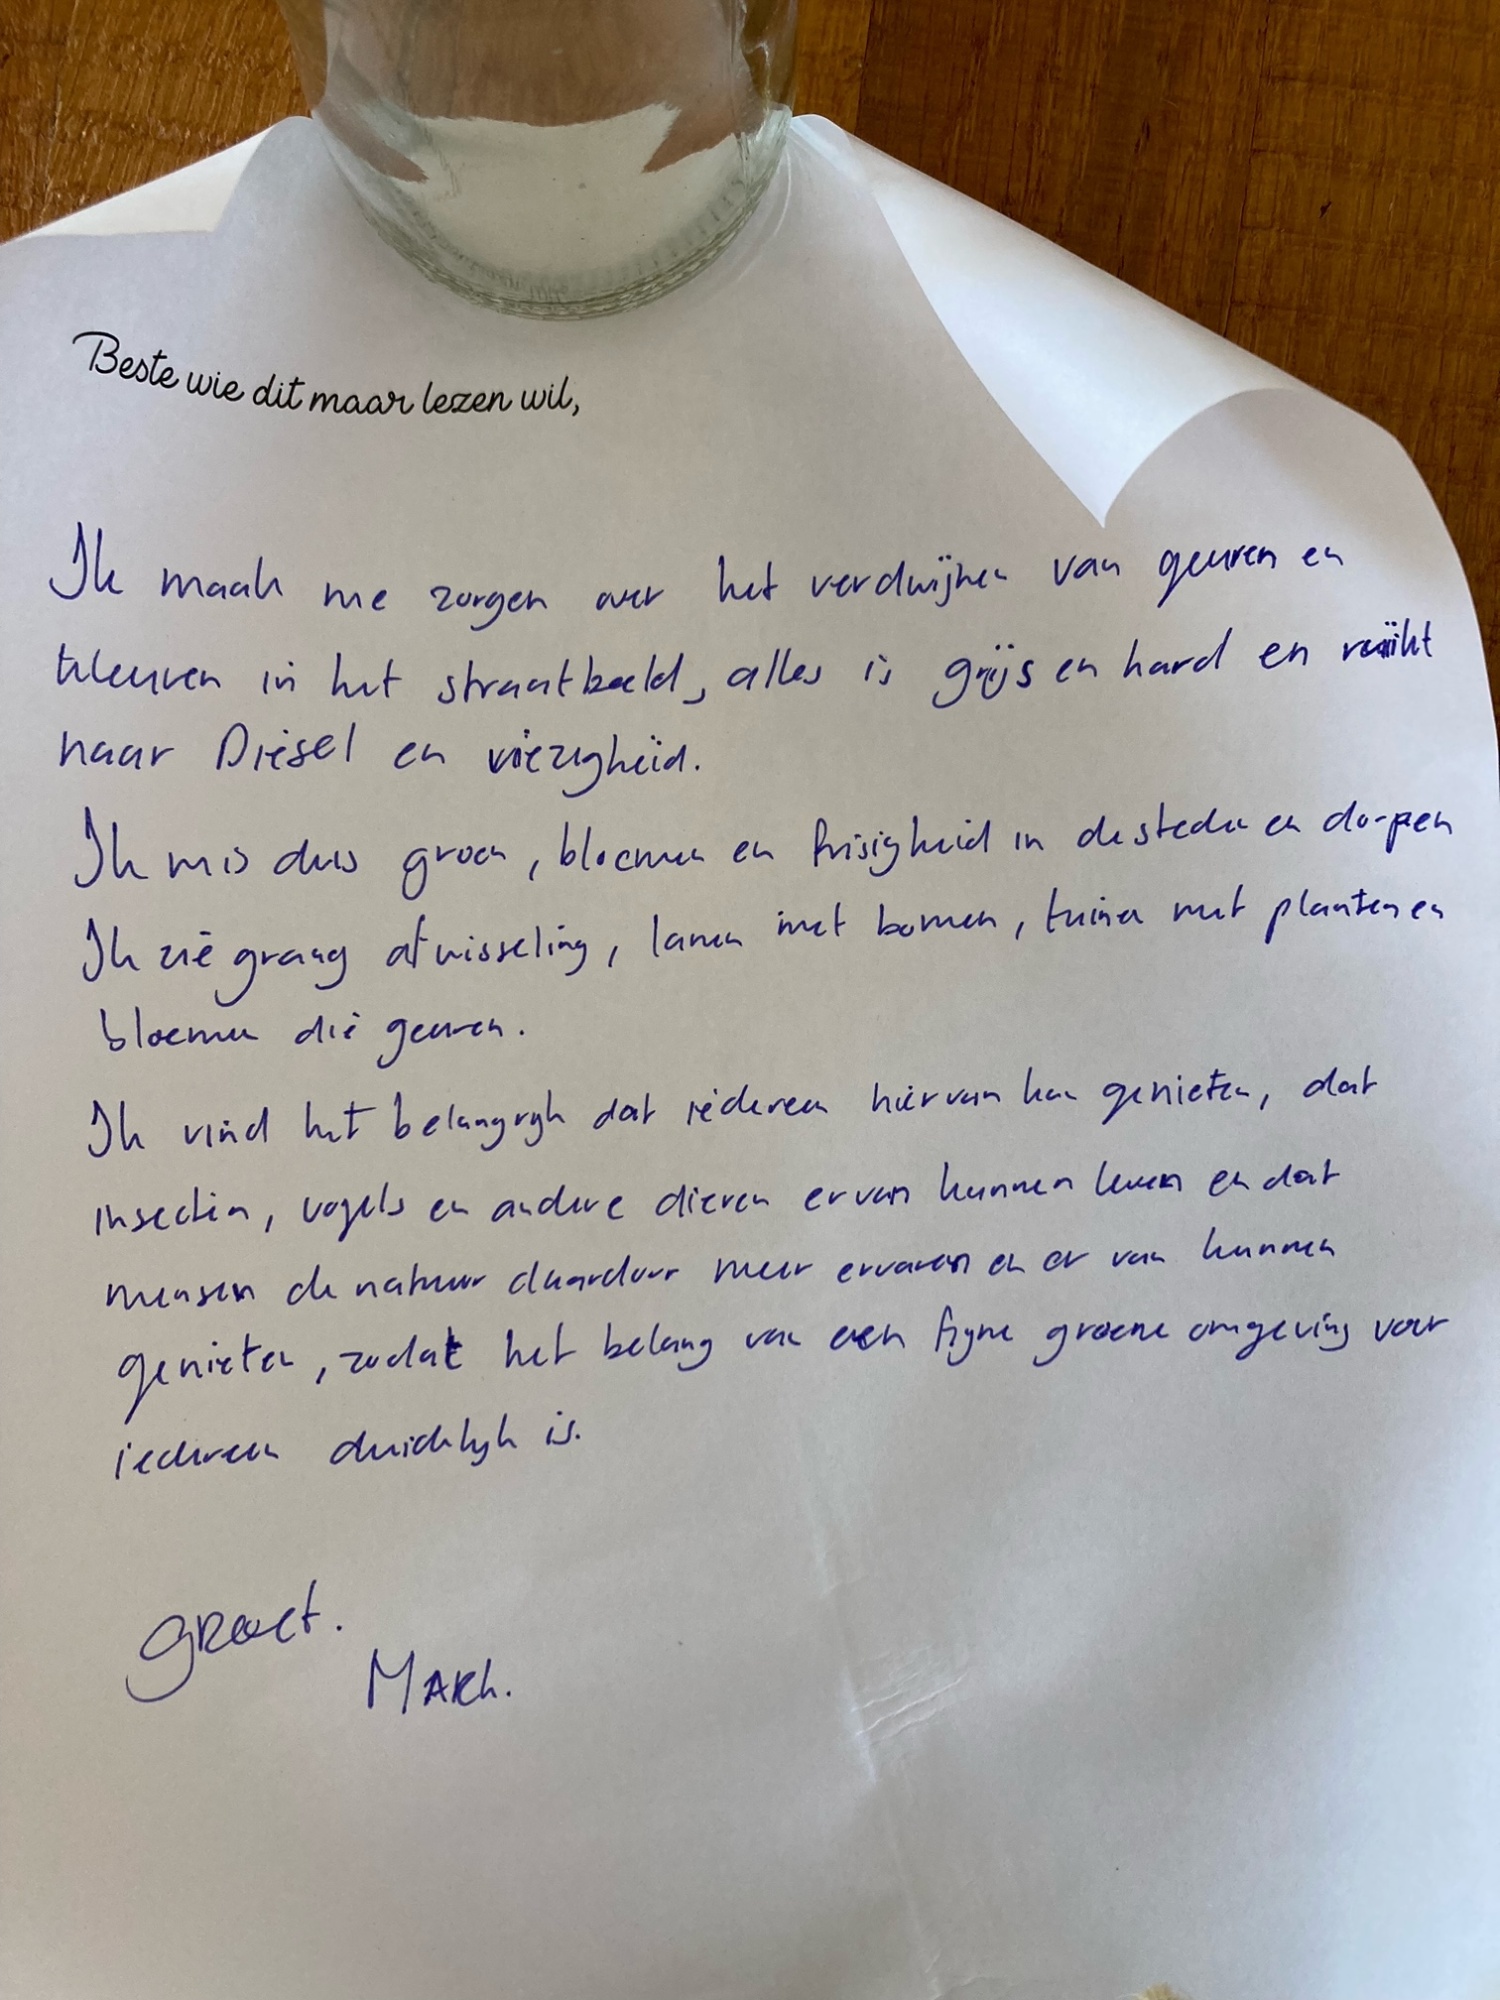 Beste wie dit maar lezen wil,
Ik maak me zorgen over het verdwijnen van geuren en
kleuren in het straatbeeld, alles is grijs en hard en ruikt
naar Diesel en viezigheid.
Ik mis dus groen, bloemen en frisigheid in de steden en dorpen
Ik zie graag afwisseling, lanen met bomen, tuinen met planten en
bloemen die geuren.
Ik vind het belangrijk dat iedereen hiervan kan genieten, dat
insecten, vogels en andere dieren ervan kunnen leven en dat
mensen de natuur daardoor meer ervaren en er van kunnen
genieten, zodat het belang van een fijne groene omgeving voor
iedereen duidelijk is.
Groet.
Mark.